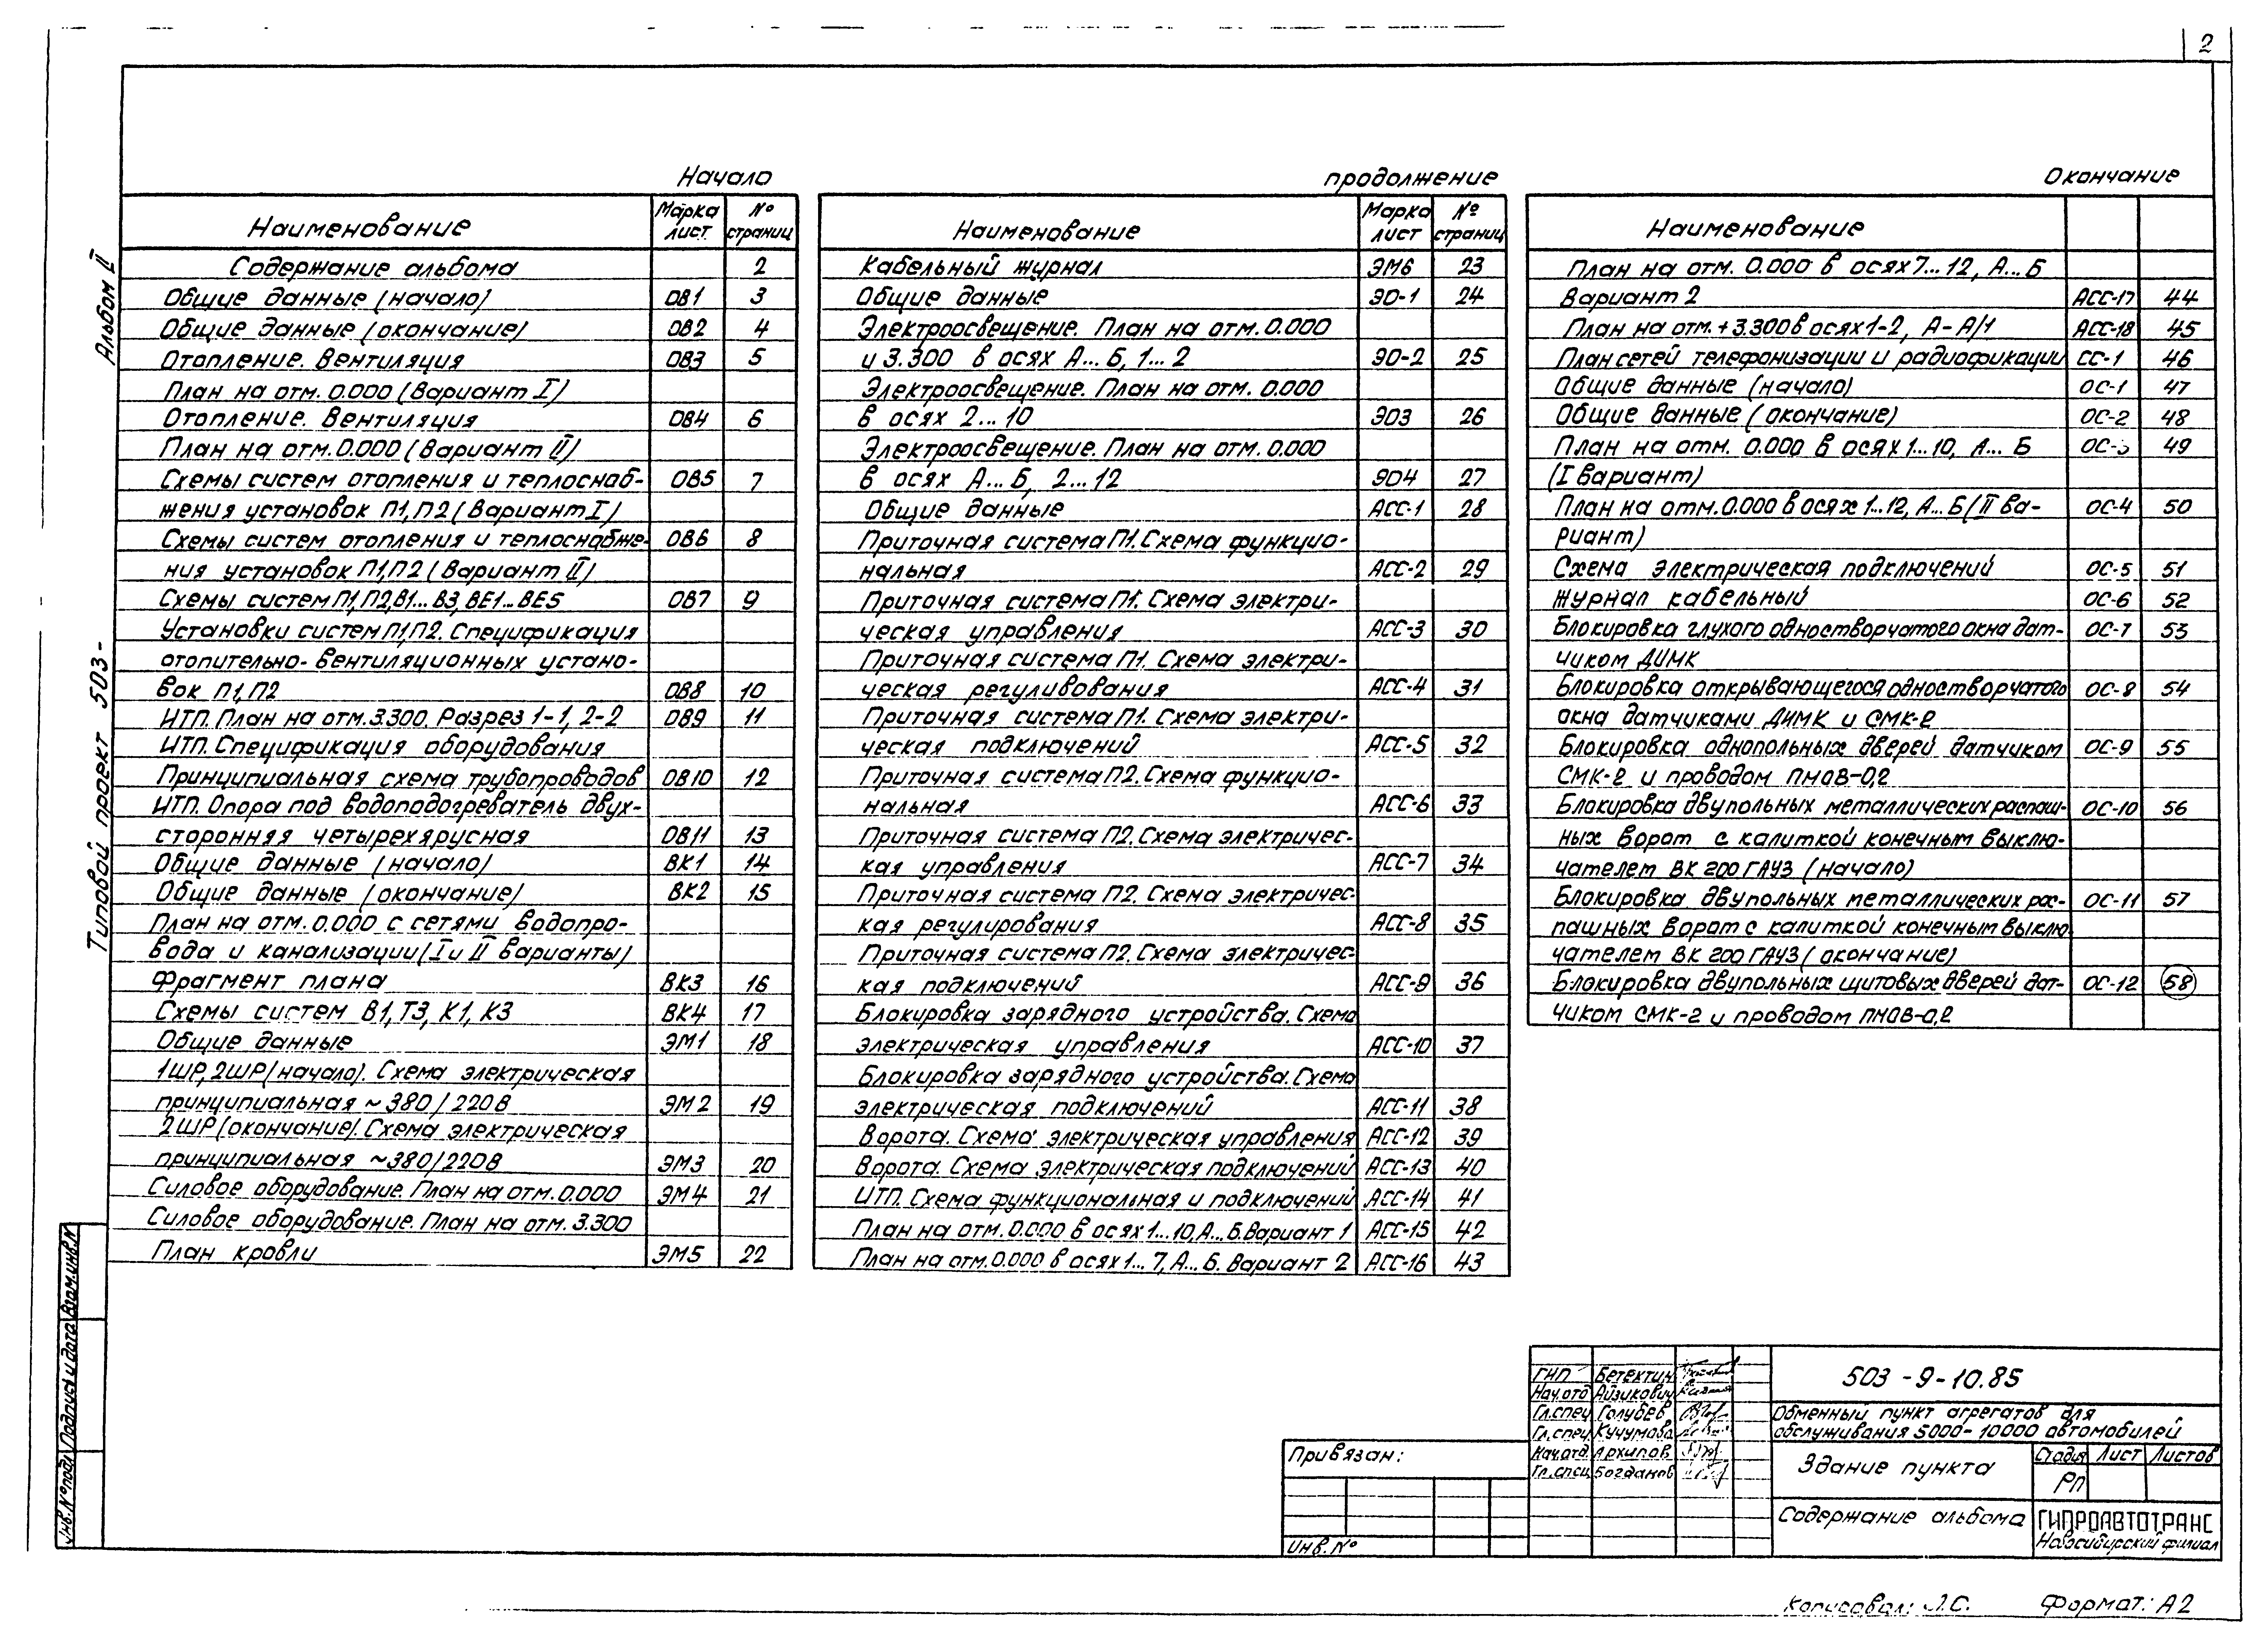 2
Начало
Наименование Марка лист № страниц
Содержание альбома 2
Общие данные (начало) ОВ1 3
Общие данные (окончание) ОВ2 4
Отопление. Вентиляция ОВ3 5
План на отм. 0.000 (Вариант I)
Отопление. Вентиляция ОВ4 6
План на отм. 0.000 (Вариант II)
Схемы систем отопления и теплоснаб- ОВ5 7
жения установок П1, П2 (Вариант I)
Схемы систем отопления и теплоснабже- ОВ6 8
ния установок П1, П2 (Вариант II)
Схемы систем П1, П2, В1...В3, ВЕ1...ВЕ5 ОВ7 9
Установки систем П1, П2. Спецификация
отопительно-вентиляционных устано-
вок П1, П2 ОВ8 10
ИТП. План на отм. 3.300. Разрез 1-1, 2-2 ОВ9 11
ИТП. Спецификация оборудования
Принципиальная схема трубопроводов ОВ10 12
ИТП. Опора под водоподогреватель двух-
сторонняя четырехярусная ОВ11 13
Общие данные (начало) ВК1 14
Общие данные (окончание) ВК2 15
План на отм. 0.000 с сетями водопро-
вода и канализации (I и II варианты)
Фрагмент плана ВК3 16
Схемы систем В1, Т3, К1, К3 ВК4 17
Общие данные ЭМ1 18
1ШР, 2ШР (начало). Схема электрическая
принципиальная ~380/220В ЭМ2 19
2ШР (окончание). Схема электрическая
принципиальная ~380/220В ЭМ3 20
Силовое оборудование. План на отм. 0.000 ЭМ4 21
Силовое оборудование. План на отм. 3.300
План кровли ЭМ5 22
продолжение
Наименование Марка лист № страниц
Кабельный журнал ЭМ6 23
Общие данные ЭО-1 24
Электроосвещение. План на отм. 0.000
и 3.300 в осях А...Б, 1...2 ЭО-2 25
Электроосвещение. План на отм. 0.000
в осях 2...10 ЭО3 26
Электроосвещение. План на отм. 0.000
в осях А...Б, 2...12 ЭО4 27
Общие данные АСС-1 28
Приточная система П1. Схема функцио-
нальная АСС-2 29
Приточная система П1. Схема электри-
ческая управления АСС-3 30
Приточная система П1. Схема электри-
ческая регуливования АСС-4 31
Приточная система П1. Схема электри-
ческая подключений АСС-5 32
Приточная система П2. Схема функцио-
нальная АСС-6 33
Приточная система П2. Схема электричес-
кая управления АСС-7 34
Приточная система П2. Схема электричес-
кая регулирования АСС-8 35
Приточная система П2. Схема электричес-
кая подключений АСС-9 36
Блокировка зарядного устройства. Схема
электрическая управления АСС-10 37
Блокировка зарядного устройства. Схема
электрическая подключений АСС-11 38
Ворота. Схема электрическая управления АСС-12 39
Ворота. Схема электрическая подключений АСС-13 40
ИТП. Схема функциональная и подключений АСС-14 41
План на отм. 0.000 в осях 1...10, А...Б. Вариант 1 АСС-15 42
План на отм. 0.000 в осях 1...7, А...Б. Вариант 2 АСС-16 43
Окончание
Наименование
План на отм. 0.000 в осях 7...12, А...Б
Вариант 2 АСС-17 44
План на отм. +3.300 в осях 1-2, А-А/1 АСС-18 45
План сетей телефонизации и радиофикации СС-1 46
Общие данные (начало) ОС-1 47
Общие данные (окончание) ОС-2 48
План на отм. 0.000 в осях 1...10, А...Б ОС-3 49
(I вариант)
План на отм. 0.000 в осях 1...12, А...Б (II ва- ОС-4 50
риант)
Схема электрическая подключений ОС-5 51
Журнал кабельный ОС-6 52
Блокировка глухого одностворчатого окна дат- ОС-7 53
чиком ДИМК
Блокировка открывающегося одностворчатого ОС-8 54
окна датчиками ДИМК и СМК-2
Блокировка однопольных дверей датчиком ОС-9 55
СМК-2 и проводом ПМОВ-0,2
Блокировка двупольных металлических распаш- ОС-10 56
ных ворот с калиткой конечным выклю-
чателем ВК 200 ГАУЗ (начало)
Блокировка двупольных металлических рас- ОС-11 57
пашных ворот с калиткой конечным выклю
чателем ВК 200 ГАУЗ (окончание)
Блокировка двупольных щитовых дверей дат- ОС-12 58
чиком СМК-2 и проводом ПМОВ-0,2
Альбом II
Типовой проект 503-
Взам.инв.N
Подпись и дата
Инв.№подл
Привязан:
Инв. №
ГИП Бетехтин
Нач.отд Айзикович
Гл.спец Голубев
Гл.спец Кучумова
Нач.отд. Архипов
Гл.спец Богданов
503-9-10.85
Обменный пункт агрегатов для
обслуживания 5000-10000 автомобилей
Здание пункта
Стадия Лист Листов
РП
Содержание альбома
ГИПРОАВТОТРАНС
Новосибирский филиал
Копировал: Л.С. Формат: А2